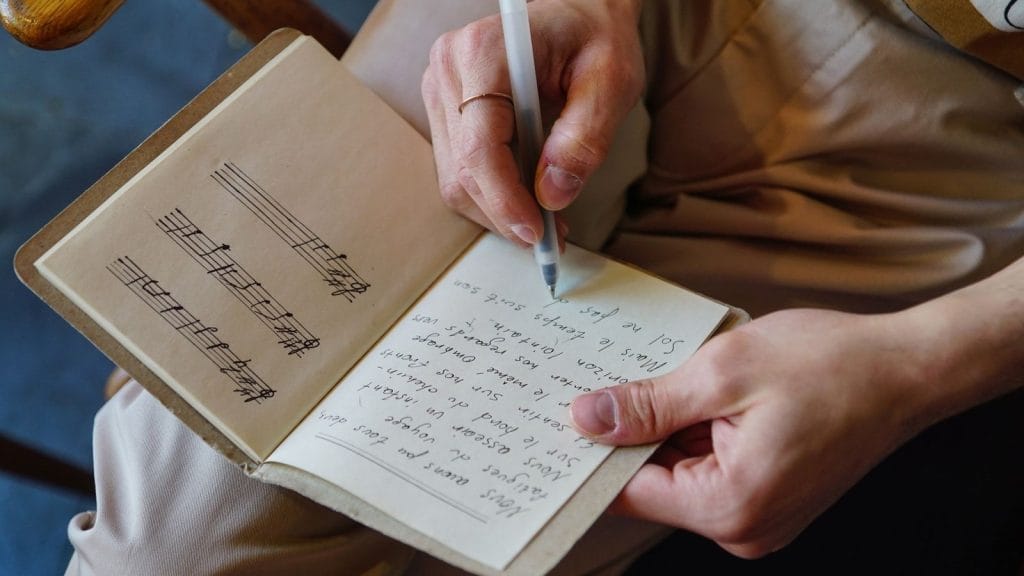 Nous avons pu tous deux
fatigués du voyage
Nous asseoir un instant
sur le bord du chemin-
sentir sur nos fronts
le même ombrage
nos regards vers
lointain.
Mais le temps suit son
Sol ne pas